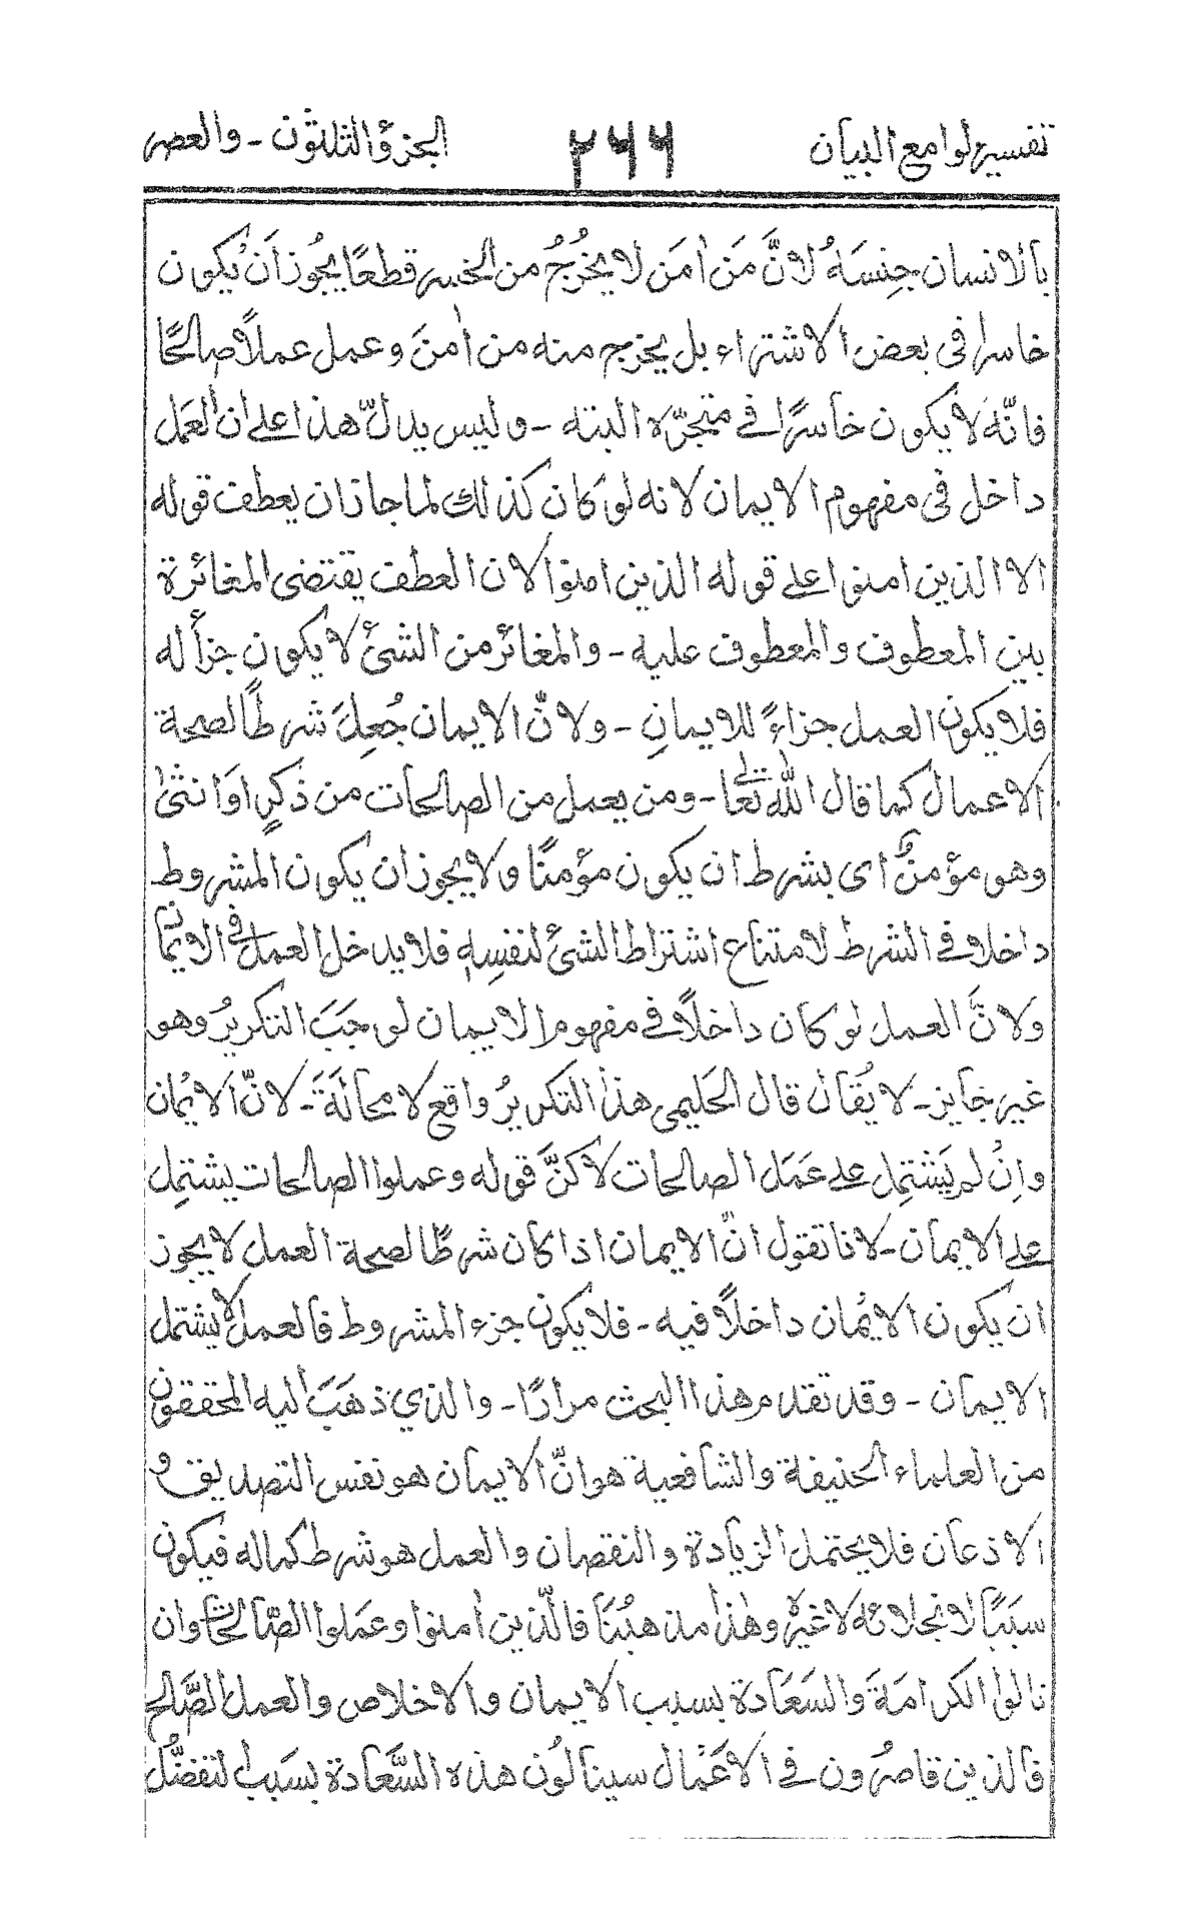 تفسير لوامع البيان ٢٦٦ الجزؤ الثلثون - والعصر
بالانسان جِنسَهُ لانَّ مَن اٰمَن لا يَخرُجُ من الخسر قطعًا يجُوز اَن يكون
خاسرا في بعض الاشتراء بل يخرج منه من اٰمنَ وعمل عملاً صالحًا
فانّهُ لا يكون خاسرًا في متجرّه البته - وليس يدلّ هذا على ان العَمل
داخل في مفهوم الايمان لانه لو كان كذلك لما جاز ان يعطف قوله
الا الذين امنوا على قوله الذين امنوا لان العطف يقتضى المغائرة
بين المعطوف والمعطوف عليه - والمغائر من الشئ لا يكون جزأ له
فلا يكون العمل جزاءً للايمانِ - ولانّ الايمان جُعِلَ شرطًا لصحة
الاعمال كما قال الله تعالٰى - ومن يعمل من الصالحات من ذكرٍ اوَ انثىٰ
وهو مؤمنٌ اى بشرط ان يكون مؤمنًا ولا يجوز ان يكون المشروط
داخلا في الشرط لامتناع اشتراط الشئ لنفسِهٖ فلا يدخل العمل في الايمان
ولانَّ العمل لو كان داخلًا في مفهوم الايمان لوجَبَ التكريرُ وهو
غير جايز - لا يُقال قال الحَليمى هذا التكريرُ واقع لا محالَةَ - لانّ الايمان
واِنْ لم يَشتمِل على عَمَل الصالحات لاكنَّ قوله وعملوا الصالحات يشتمِل
على الايمان - لانا نقول انّ الايمان اذا كان شرطًا لصحة العملِ لا يجوز
ان يكون الايمان داخلًا فيه - فلا يكون جزء المشروط فالعمل لا يشتمل
الايمان - وقد تقدم هذا البحث مرارًا - والذي ذهَبَ اليه المحققون
من العلماء الحنيفة والشافعية هو انّ الايمان هو نفس التصديق و
الاذعان فلا يحتمل الزيادة والنقصان والعمل هو شرط كماله فيكون
سبَبًا لانجلائه لا غيرُه وهٰذا مذهبُنَا فالّذين اٰمنوا وعَملوا الصّالحات وان
نالوا الكرامَةَ والسَعَادة بسبب الايمان والاخلاص والعمل الصَّالح
فالذين قاصرُون في الاَعْمال سينالُون هذه السَّعادة بسَبب التفضُّل